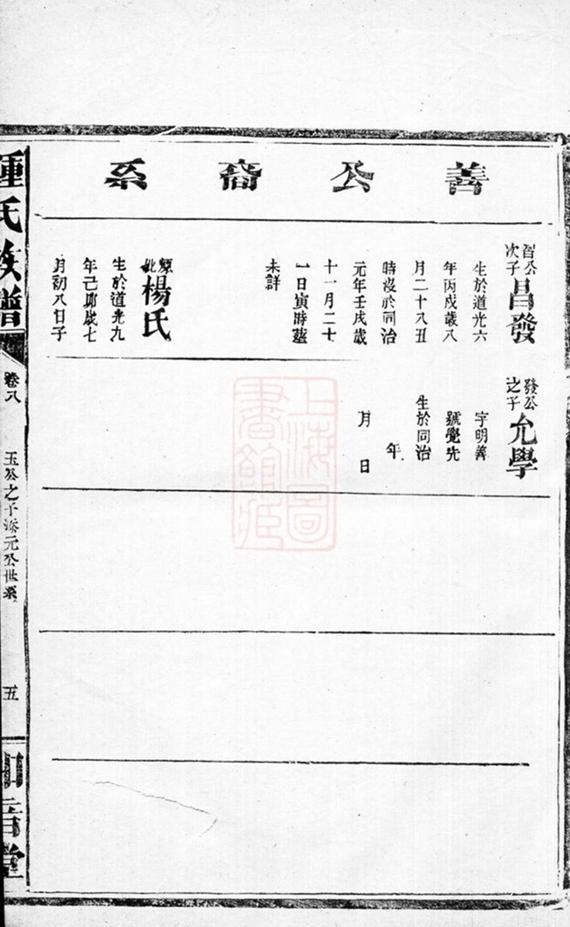 善公裔系
公次子
昌發
生於道光六
年丙戌歲八
月二十八丑
時歿於同治
元年壬戌歲
十一月二十
一日寅時葬
未詳
原配
楊氏
生於道光九
年己卯歲七
月初八日子
發公之子
允學
字明善
號覺先
生於同治
年
月 日
鍾氏族譜
卷八
玉公之子添元公世系
五
知音堂
上海圖書館藏